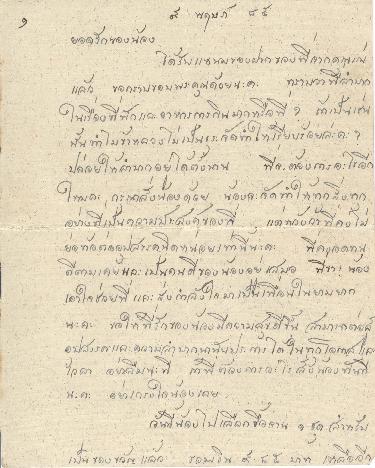 ๑
๙ พฤษภ ๘๕
ยอดรักของน้อง
ได้รับแหนมของฝากของพี่
แล้ว ขอกราบขอบพระคุณด้วยนะคะ ทราบว่าพี่ลำบาก
ในเรื่องที่พักและอาหารการกินมากหรือพี่ ๆ ถ้าเป็นเช่น
นั้นทำไมข้าหลวงไม่เป็นธุระจัดทำให้เรียบร้อยละคะ ๆ
ปล่อยให้ลำบากอยู่ได้ตั้งนาน พี่จะต้องการอะไรอีก
ไหมคะ กรุณาสั่งน้องด้วย น้องจะจัดทำให้ทุกสิ่งทุก
อย่างที่เป็นความประสงค์ของพี่ แต่
ย่อท้อต่ออุปสรรคนิดหน่อยเท่านี้นะคะ พี่คงอดทน
ดีตามเคยและเป็นคนดีของน้องอยู่เสมอ พี่ขา น้อง
เอาใจช่วยพี่ และส่งกำลังใจมาเป็นเพื่อนในยามยาก
นะคะ ขอให้ที่รักของน้องมีความสุขยิ่งขึ้น สามารถต่อสู้
อุปสรรคและความลำบากนานัปประการได้ในทุกโอกาสและ
เวลา อย่าลืมนะพี่ ถ้าพี่ต้องการอะไรสั่งน้องทันที
นะคะ อย่าเกรงใจน้องเลย
วันนี้น้องไปเลือกซื้อจาน ๑ ชุด สำหรับ
เป็นของขวัญ แล้ว รวมเงิน ๙.๕๕ บาท เหลืออีก